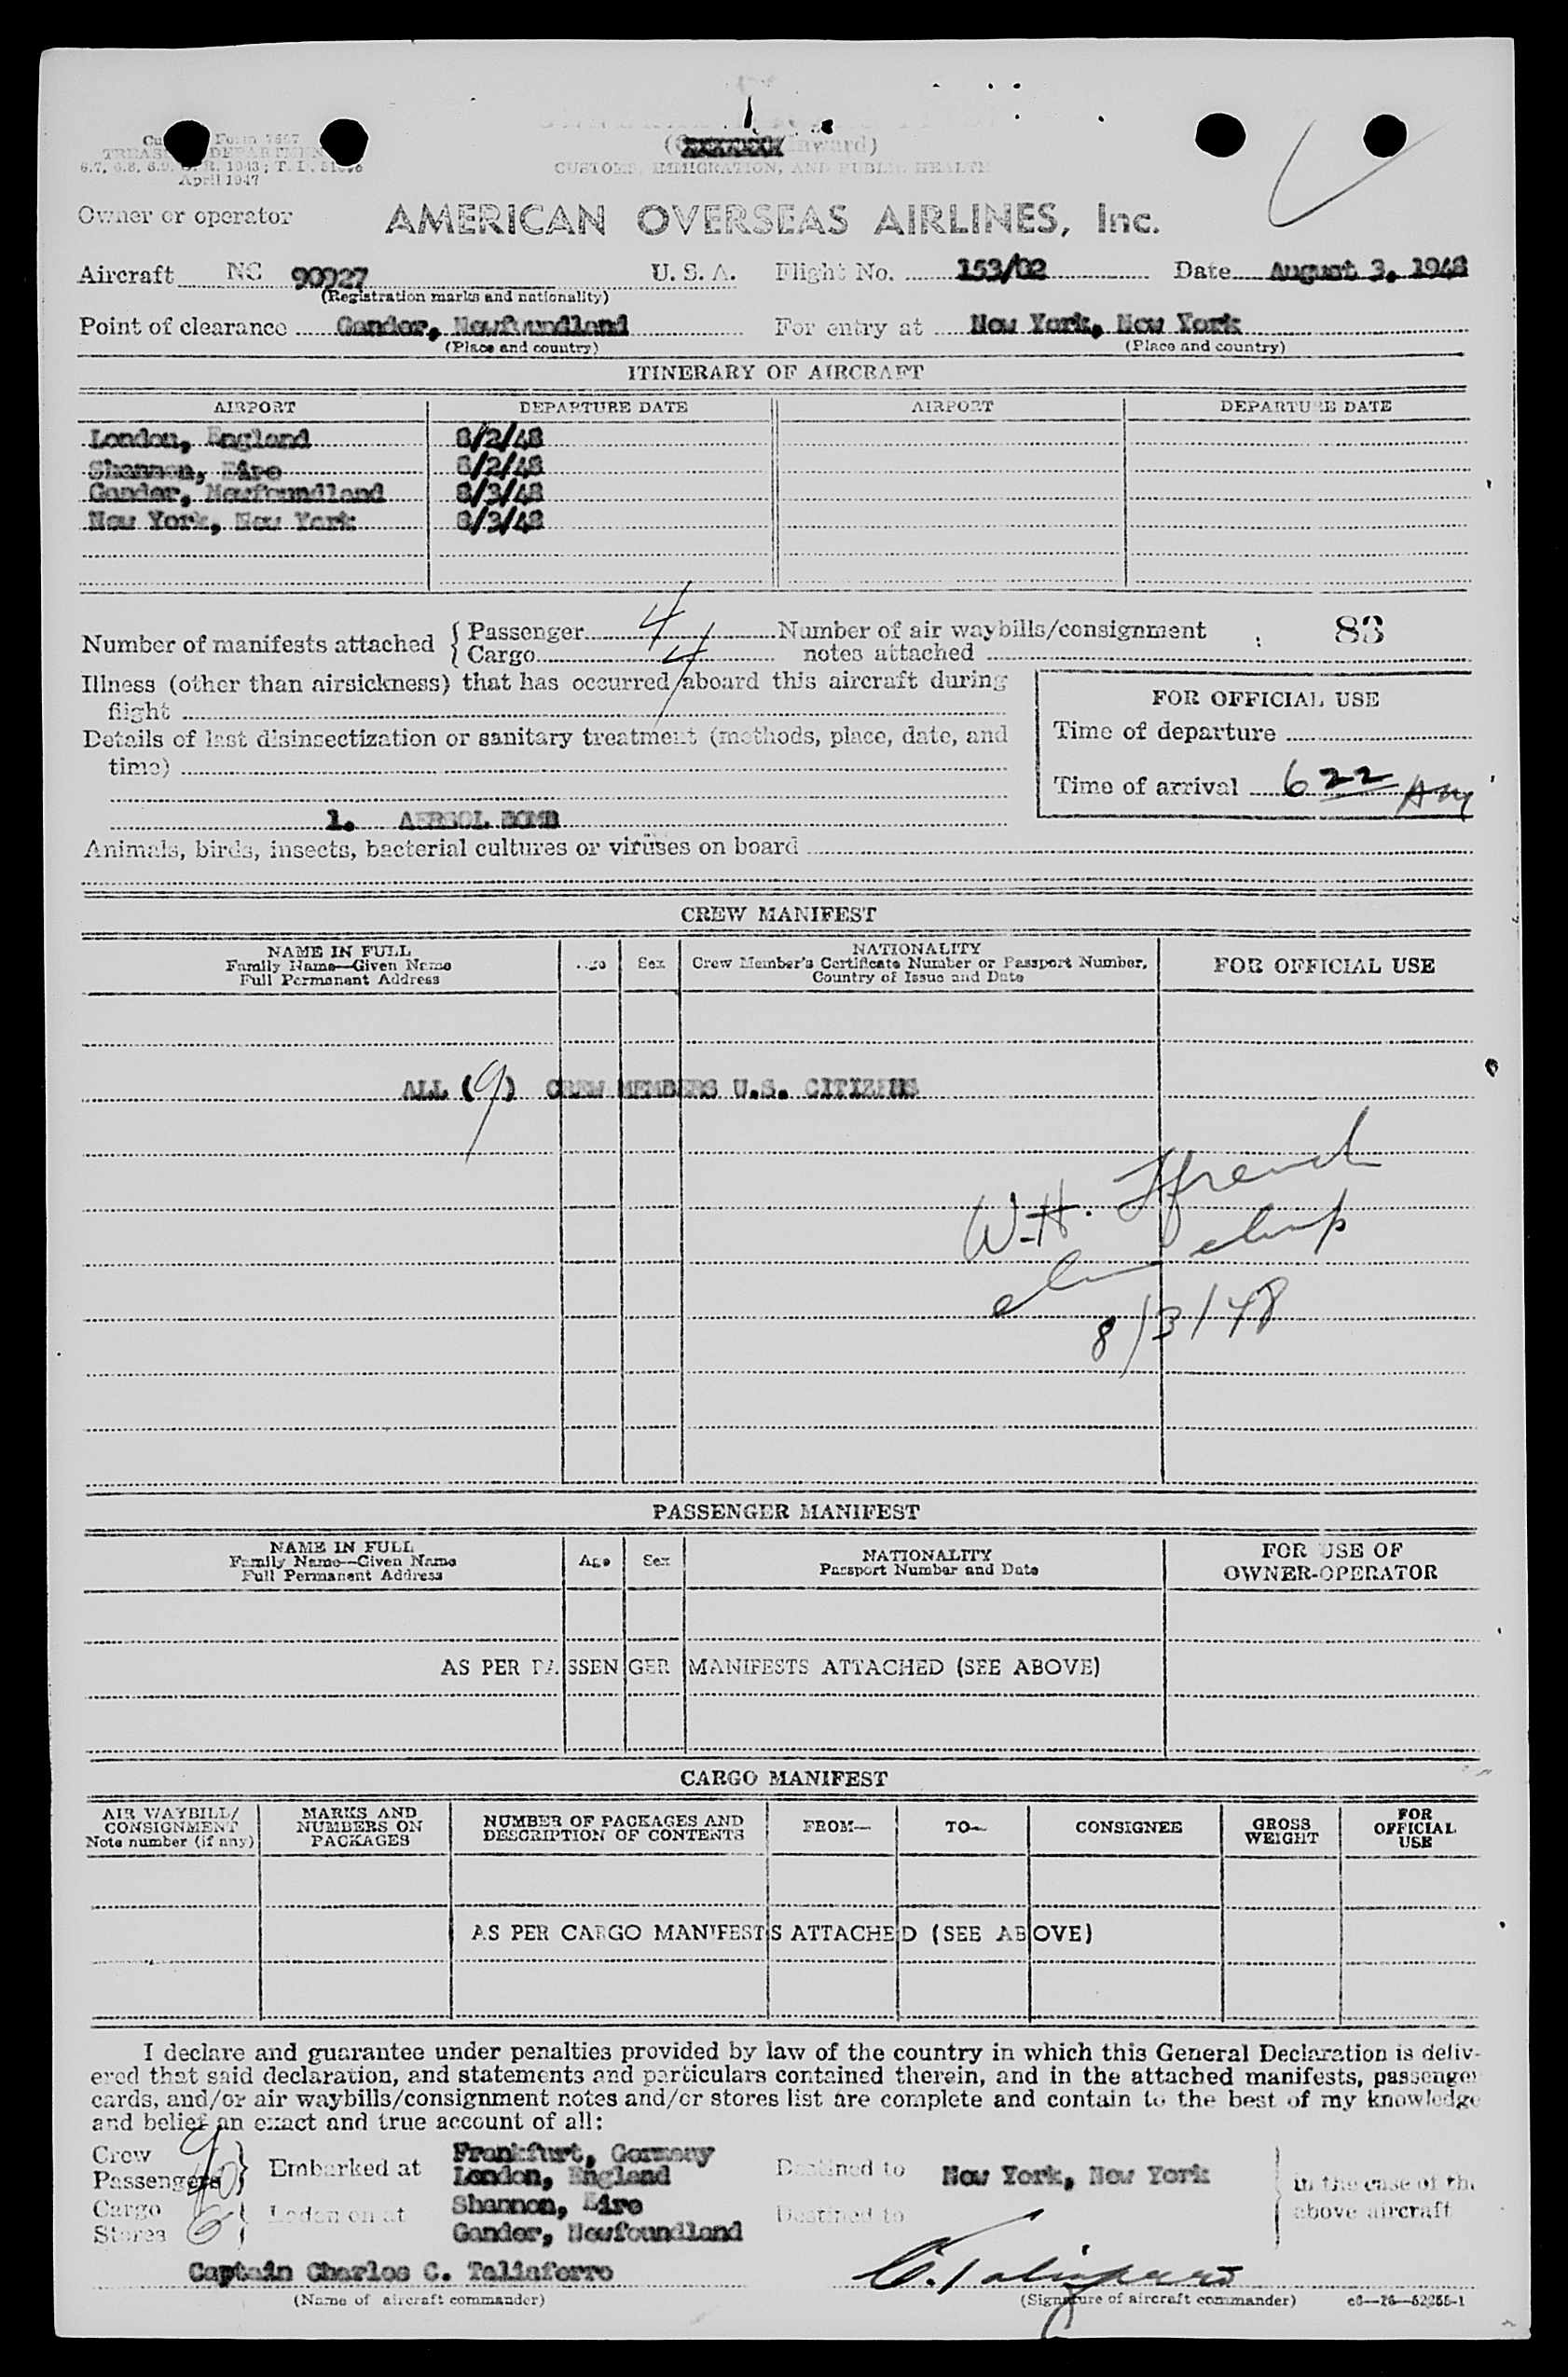 Form 7507
TREASURY DEPARTMENT
April 1947
Inward)
CUSTOMS, IMMIGRATION, AND PUBLIC HEALTH
Owner or operator AMERICAN OVERSEAS AIRLINES, Inc.
Aircraft NC 90927 U. S. A. Flight No. 153/02 Date August 3, 1948
(Registration marks and nationality)
Point of clearance Gander, Newfoundland For entry at New York, New York
(Place and country) (Place and country)
ITINERARY OF AIRCRAFT
AIRPORT DEPARTURE DATE AIRPORT DEPARTURE DATE
London, England 8/2/48
Shannon, Eire 8/2/48
Gander, Newfoundland 8/3/48
New York, New York 8/3/48
Number of manifests attached { Passenger 4 Number of air waybills/consignment : 83
Cargo 4 notes attached
Illness (other than airsickness) that has occurred aboard this aircraft during
flight
FOR OFFICIAL USE
Details of last disinsectization or sanitary treatment (methods, place, date, and
time)
Time of departure
Time of arrival 6 22 AM
1. AERSOL BOMB
Animals, birds, insects, bacterial cultures or viruses on board
CREW MANIFEST
NAME IN FULL Age Sex NATIONALITY FOR OFFICIAL USE
Family Name—Given Name Crew Member's Certificate Number or Passport Number,
Full Permanent Address Country of Issue and Date
ALL (9) CREW MEMBERS U.S. CITIZENS
W.H.
8/3/48
PASSENGER MANIFEST
NAME IN FULL Age Sex NATIONALITY FOR USE OF
Family Name—Given Name Passport Number and Date OWNER-OPERATOR
Full Permanent Address
AS PER PASSENGER MANIFESTS ATTACHED (SEE ABOVE)
CARGO MANIFEST
AIR WAYBILL/ MARKS AND NUMBER OF PACKAGES AND FROM— TO— CONSIGNEE GROSS FOR
CONSIGNMENT NUMBERS ON DESCRIPTION OF CONTENTS WEIGHT OFFICIAL
Note number (if any) PACKAGES USE
AS PER CARGO MANIFESTS ATTACHED (SEE ABOVE)
I declare and guarantee under penalties provided by law of the country in which this General Declaration is deliv-
ered that said declaration, and statements and particulars contained therein, and in the attached manifests, passenger
cards, and/or air waybills/consignment notes and/or stores list are complete and contain to the best of my knowledge
and belief an exact and true account of all:
Crew 9 Frankfurt, Germany
Passengers 40 } Embarked at London, England Destined to New York, New York in the case of the
Cargo Laden on at Shannon, Eire Destined to above aircraft
Stores 6 Gander, Newfoundland
Captain Charles C. Taliaferro C. Taliaferro
(Name of aircraft commander) (Signature of aircraft commander)